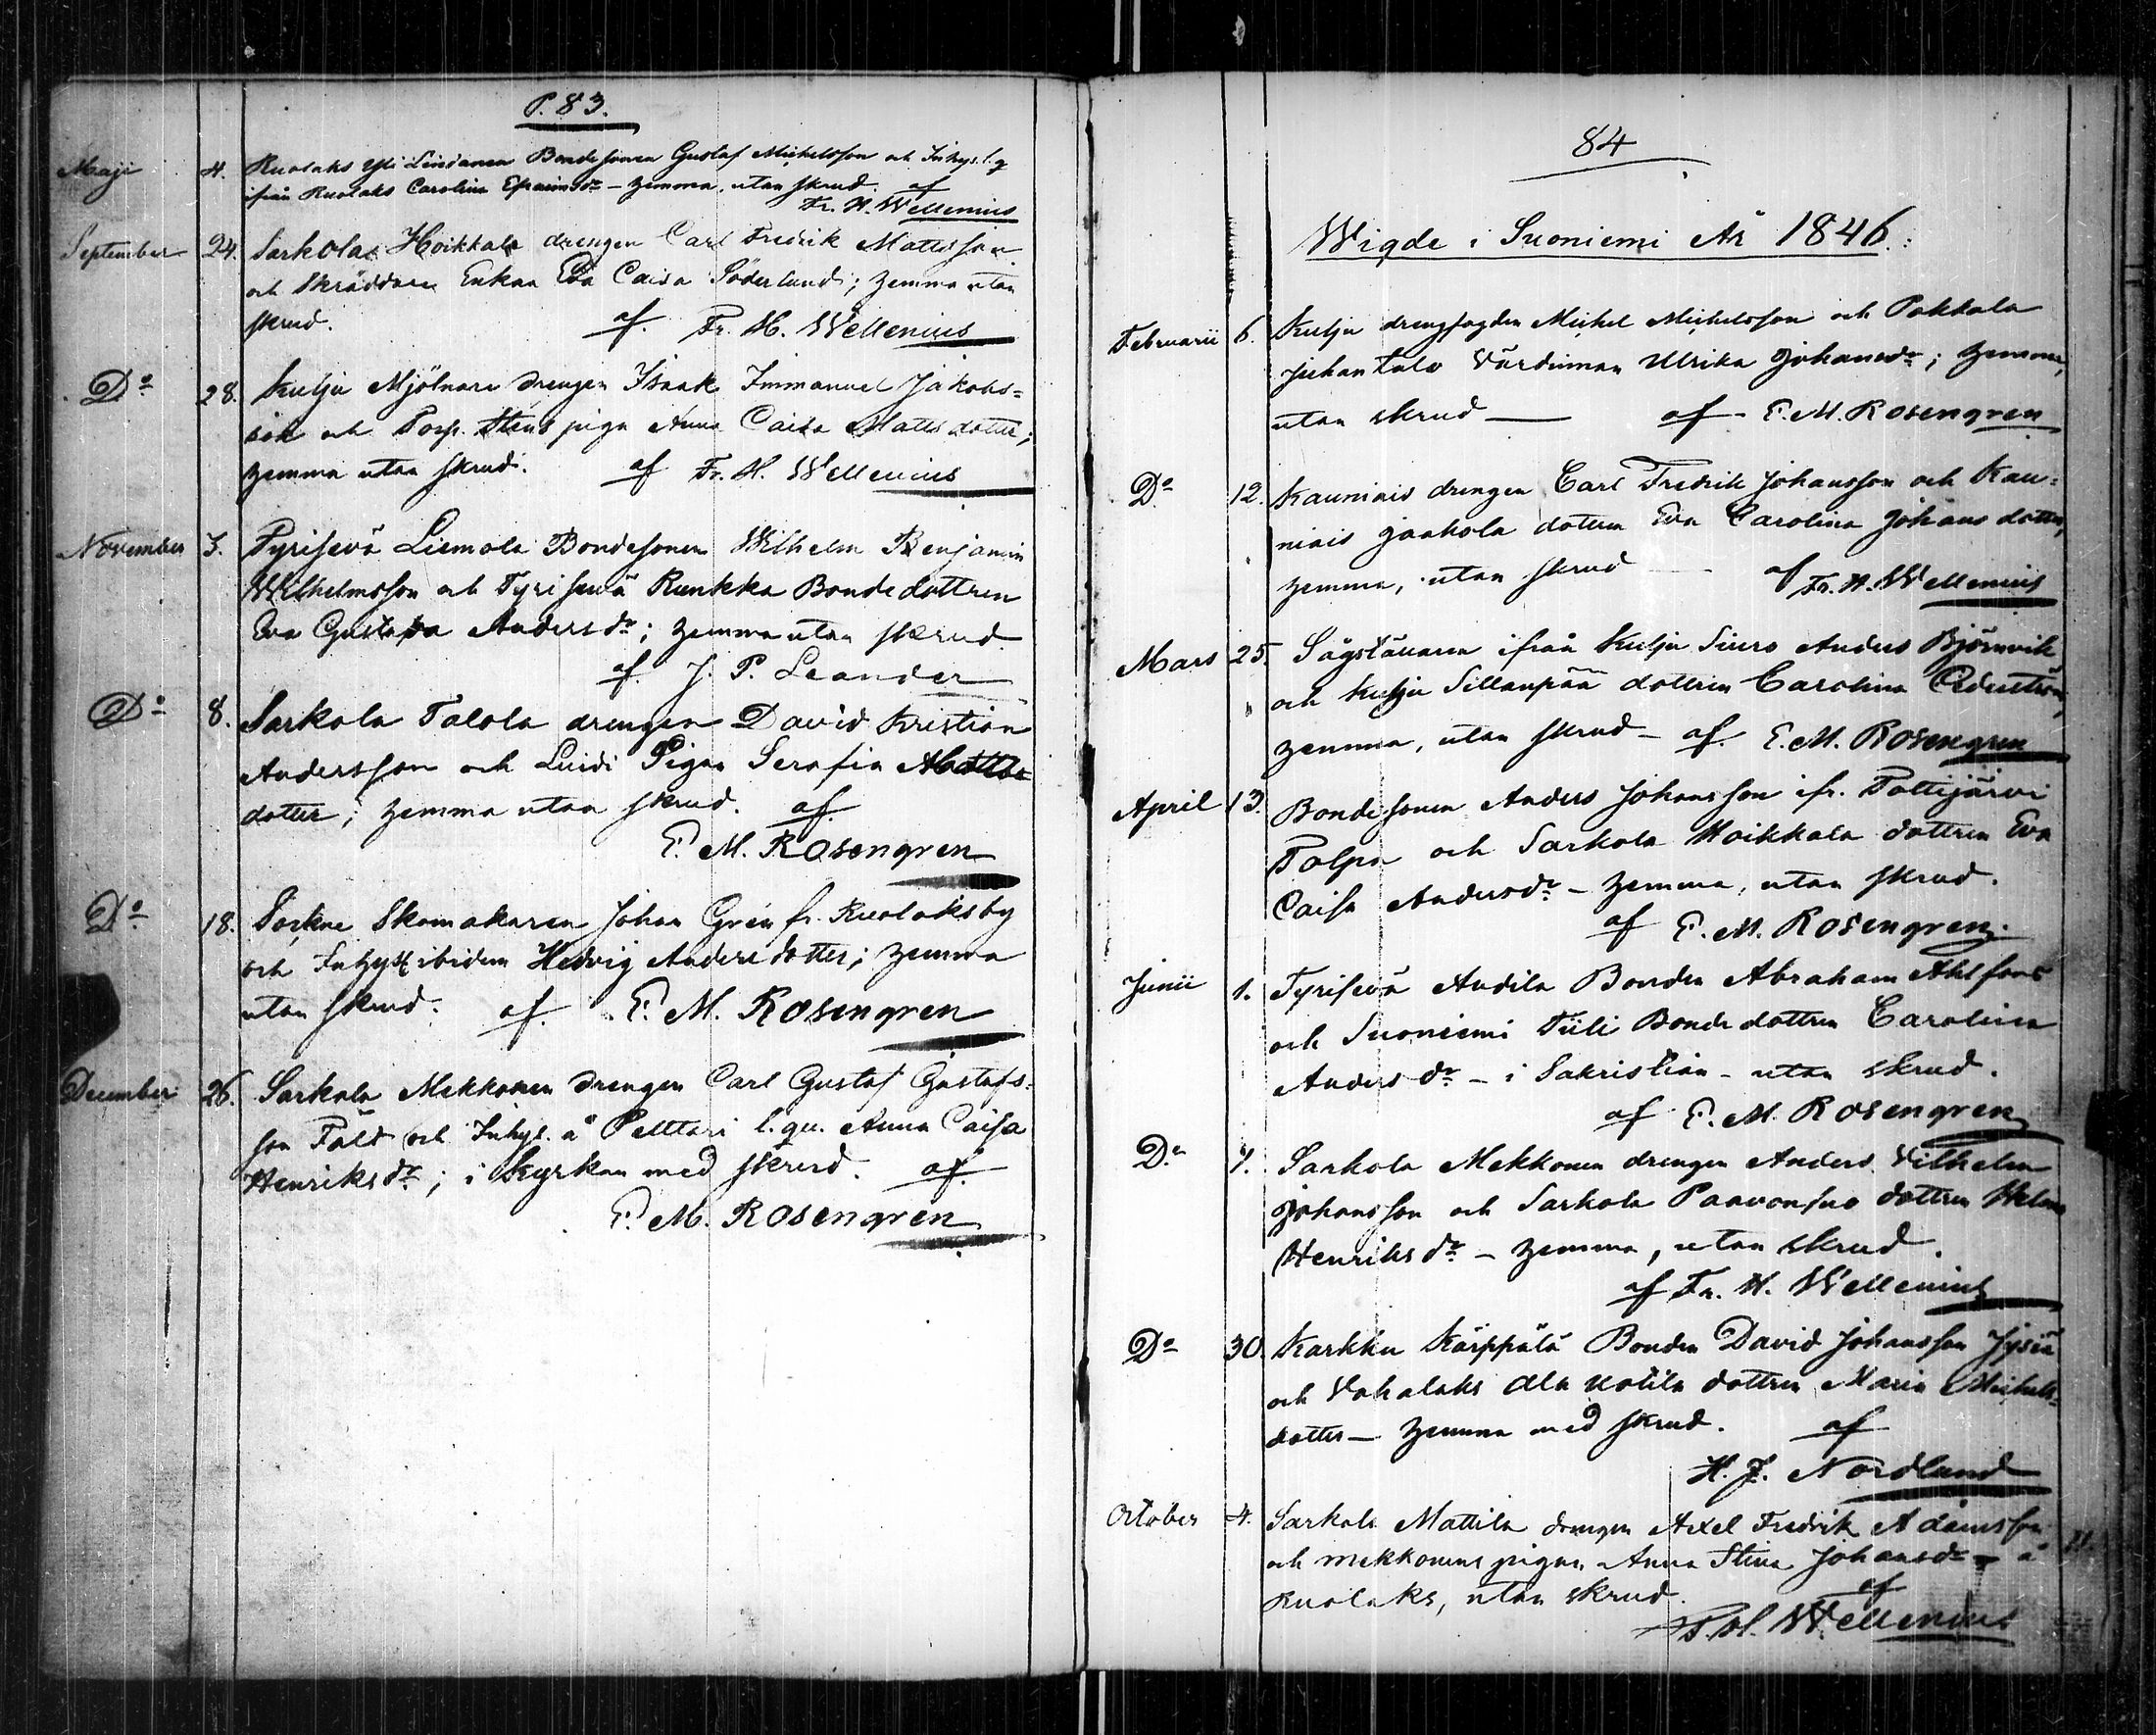 P. 83.
Maji 4. Ruolaks Yli Lindanen Bondesonen Gustaf Michelsson och Inhys. l. q
ifrån Ruolaks Carolina Efraimsdr – hemma, utan skrud. af
Fr. H. Wellenius
September 24. Sarkola Hoikkala drengen Carl Fredrik Mattsson
och Skräddare Enkan Eva Caisa Söderlund; hemma utan
skrud. af. Fr. H. Wellenius
Do 28. Kulju Mjölnare drengen Isaak Immanuel Jakobs=
son och Torp. pigan Anna Caisa Mattsdotter;
hemma utan skrud. af Fr. H. Wellenius
November 3. Tyrisevä Liemola Bondesonen Wilhelm Benjamin
Wilhelmsson och Tyrisevä Runkka Bondedottren
Eva Gustava Andersdr; hemma utan skrud.
af. J. P. Leander
Do 8. Sarkola Talola drengen David Kristian
Andersson och Luidi Pigan Serafia Matts
dotter; hemma utan skrud. af
E. M. Rosengren
Do 18. Sockne Skomakaren Johan Grén fr. Ruolaksby
och Inhyst ibidem Hedvig Andersdotter; hemma
utan skrud. af. E. M. Rosengren
December 26. Sarkola Mekkonen drengen Carl Gustaf Gustafs-
son Fält och Inhys. å Pelttari l. qu. Anna Caisa
Henriksdr; i Kyrkan med skrud. af.
E. M. Rosengren
84
Wigde i Suoniemi År 1846:
Februarii 6. Kulju drengfogden Michel Michelsson och Pakkala
Juhantalo Värdinnan Ulrika Johansdr; hemma,
utan skrud — af E. M. Rosengren
Do 12. Kauniais drengen Carl Fredrik Johansson och Kau=
niais Jaakola dottren Eva Carolina Johansdotter,
hemma, utan skrud — af Fr. H. Wellenius
Mars 25. Sågställaren ifrån Kulju Siuro Anders Björnvik
och Kulju Sillanpää dottren Carolina Cederström,
hemma, utan skrud – af. E. M. Rosengren
April 13. Bondesonen Anders Johansson ifr. Tottijärvi
Tolpa och Sarkola Hoikkala dottren Eva
Caisa Andersdr – hemma, utan skrud.
af E. M. Rosengren.
Junii 1. Tyrisevä Audila Bonden Abraham Ahlfors
och Suoniemi Tiili Bondedottren Carolina
Andersdr – i Sakristian – utan skrud.
af E. M. Rosengren
Do 7. Sarkola Mekkonen drengen Anders Vilhelm
Johansson och Sarkola Paavonsuo dottren Helena
Henriksdr – hemma, utan skrud.
af Fr. H. Wellenius
Do 30. Karkku Kärppälä Bonden David Johansson
och Vahalaks Ala Kotila dottren Maria Michels-
dotter – hemma med skrud. af
H. J. Nordlund
October 4. Sarkola Mattila drengen Axel Fredrik Adamsson
och Mekkonens pigan Anna Stina Johansdr – å
Ruolaks, utan skrud. af
Fr. H. Wellenius